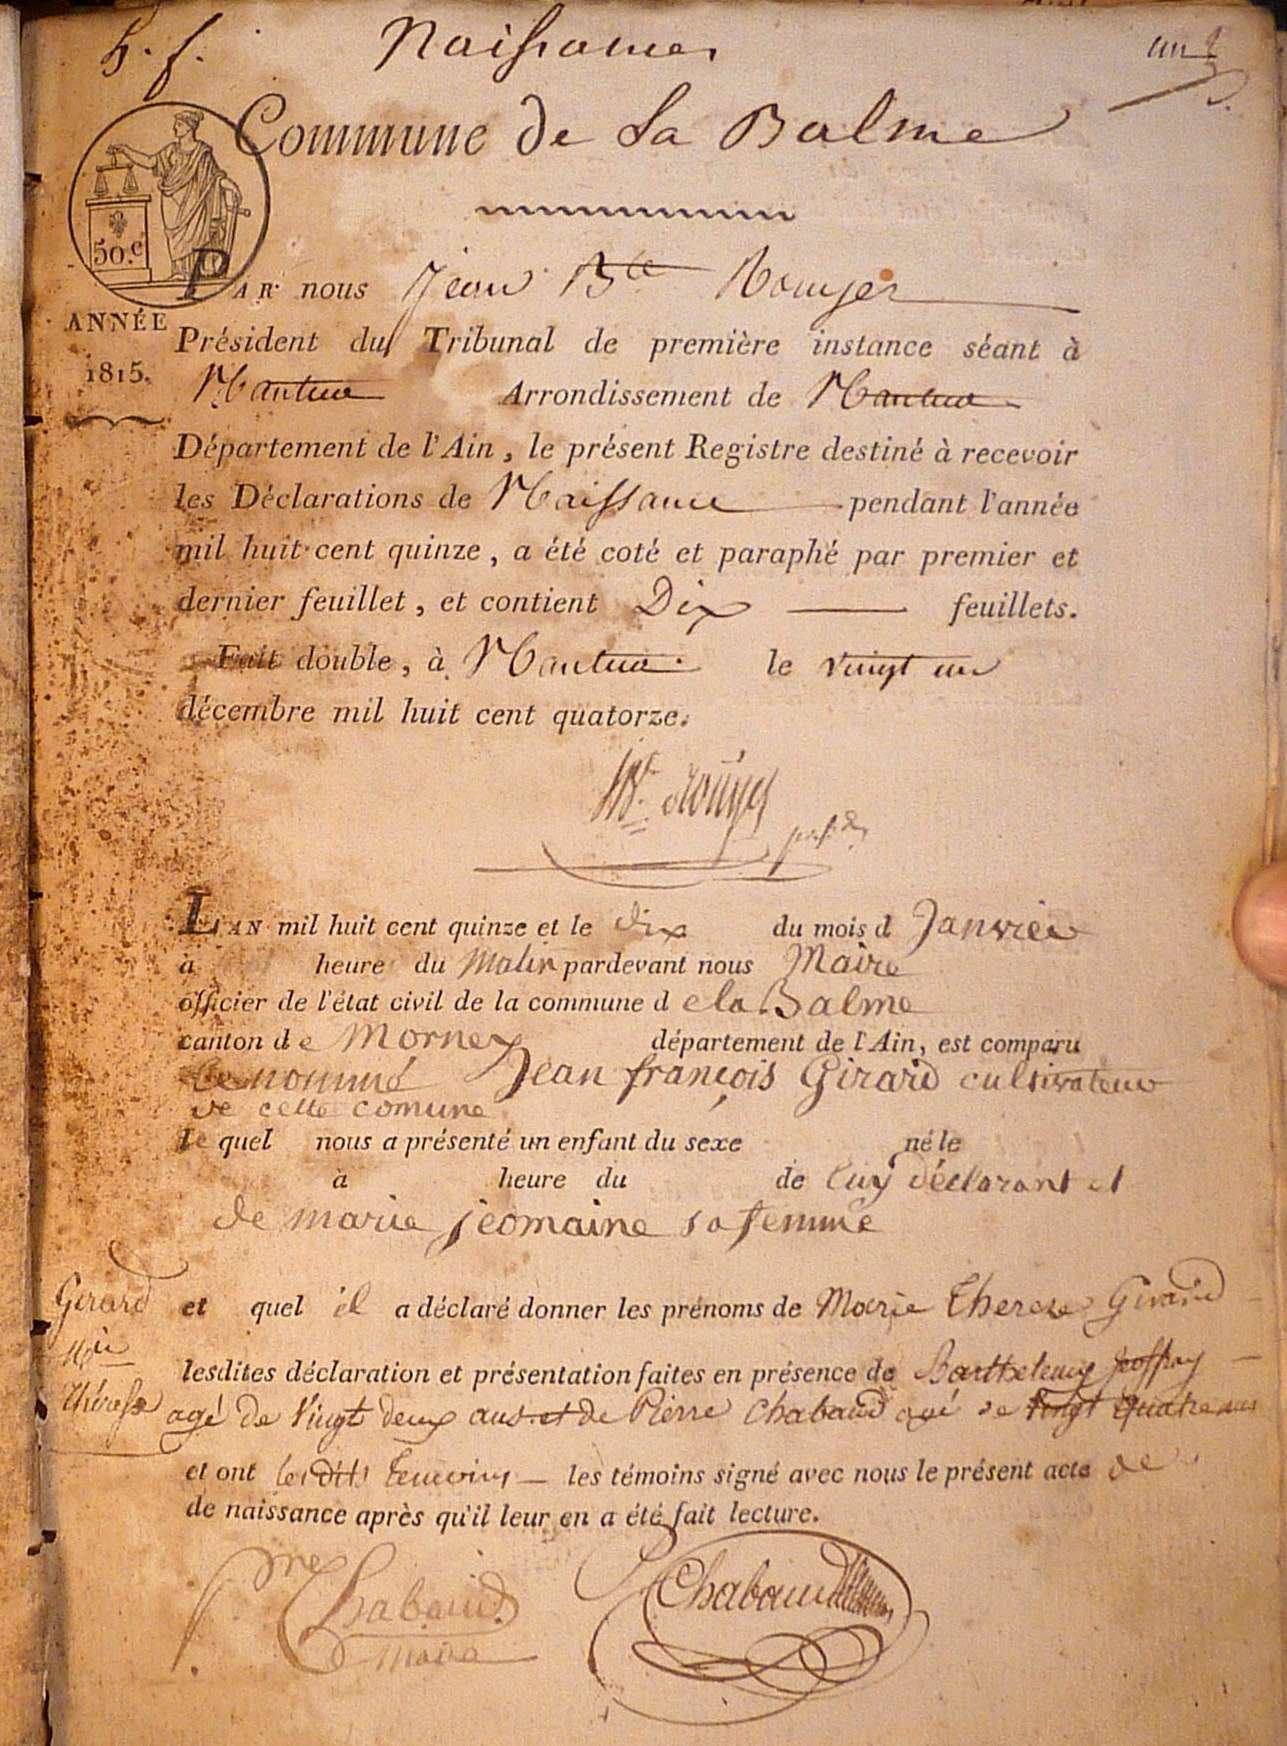 h. f. Naissances un
Commune de La Balme
50.c
ANNÉE
1815.
PAR nous Jean Bte Rouyer
Président du Tribunal de première instance séant à
Nantua Arrondissement de Nantua
Département de l'Ain, le présent Registre destiné à recevoir
les Déclarations de Naissance pendant l'année
mil huit cent quinze, a été coté et paraphé par premier et
dernier feuillet, et contient Dix feuillets.
Fait double, à Nantua le vingt un
décembre mil huit cent quatorze.
Rouyer
L'AN mil huit cent quinze et le dix du mois d Janvier
à heure du Matin pardevant nous Maire
officier de l'état civil de la commune d e la Balme
canton de Mornex département de l'Ain, est comparu
le nommé Jean françois Girard cultivateur
de cette comune
le quel nous a présenté un enfant du sexe né le
à heure du de luy déclarant et
de marie jeomaine sa femme
et quel il a déclaré donner les prénoms de Marie Therese Girard
Girard
Mie
Thérese
lesdites déclaration et présentation faites en présence de Barthelemy joffray
agé de Vingt deux ans et de Pierre Chabaud agé de Vingt quatre ans
et ont lesdits temoins les témoins signé avec nous le présent acte de
de naissance après qu'il leur en a été fait lecture.
Pre Chabaud Chabaud
maire